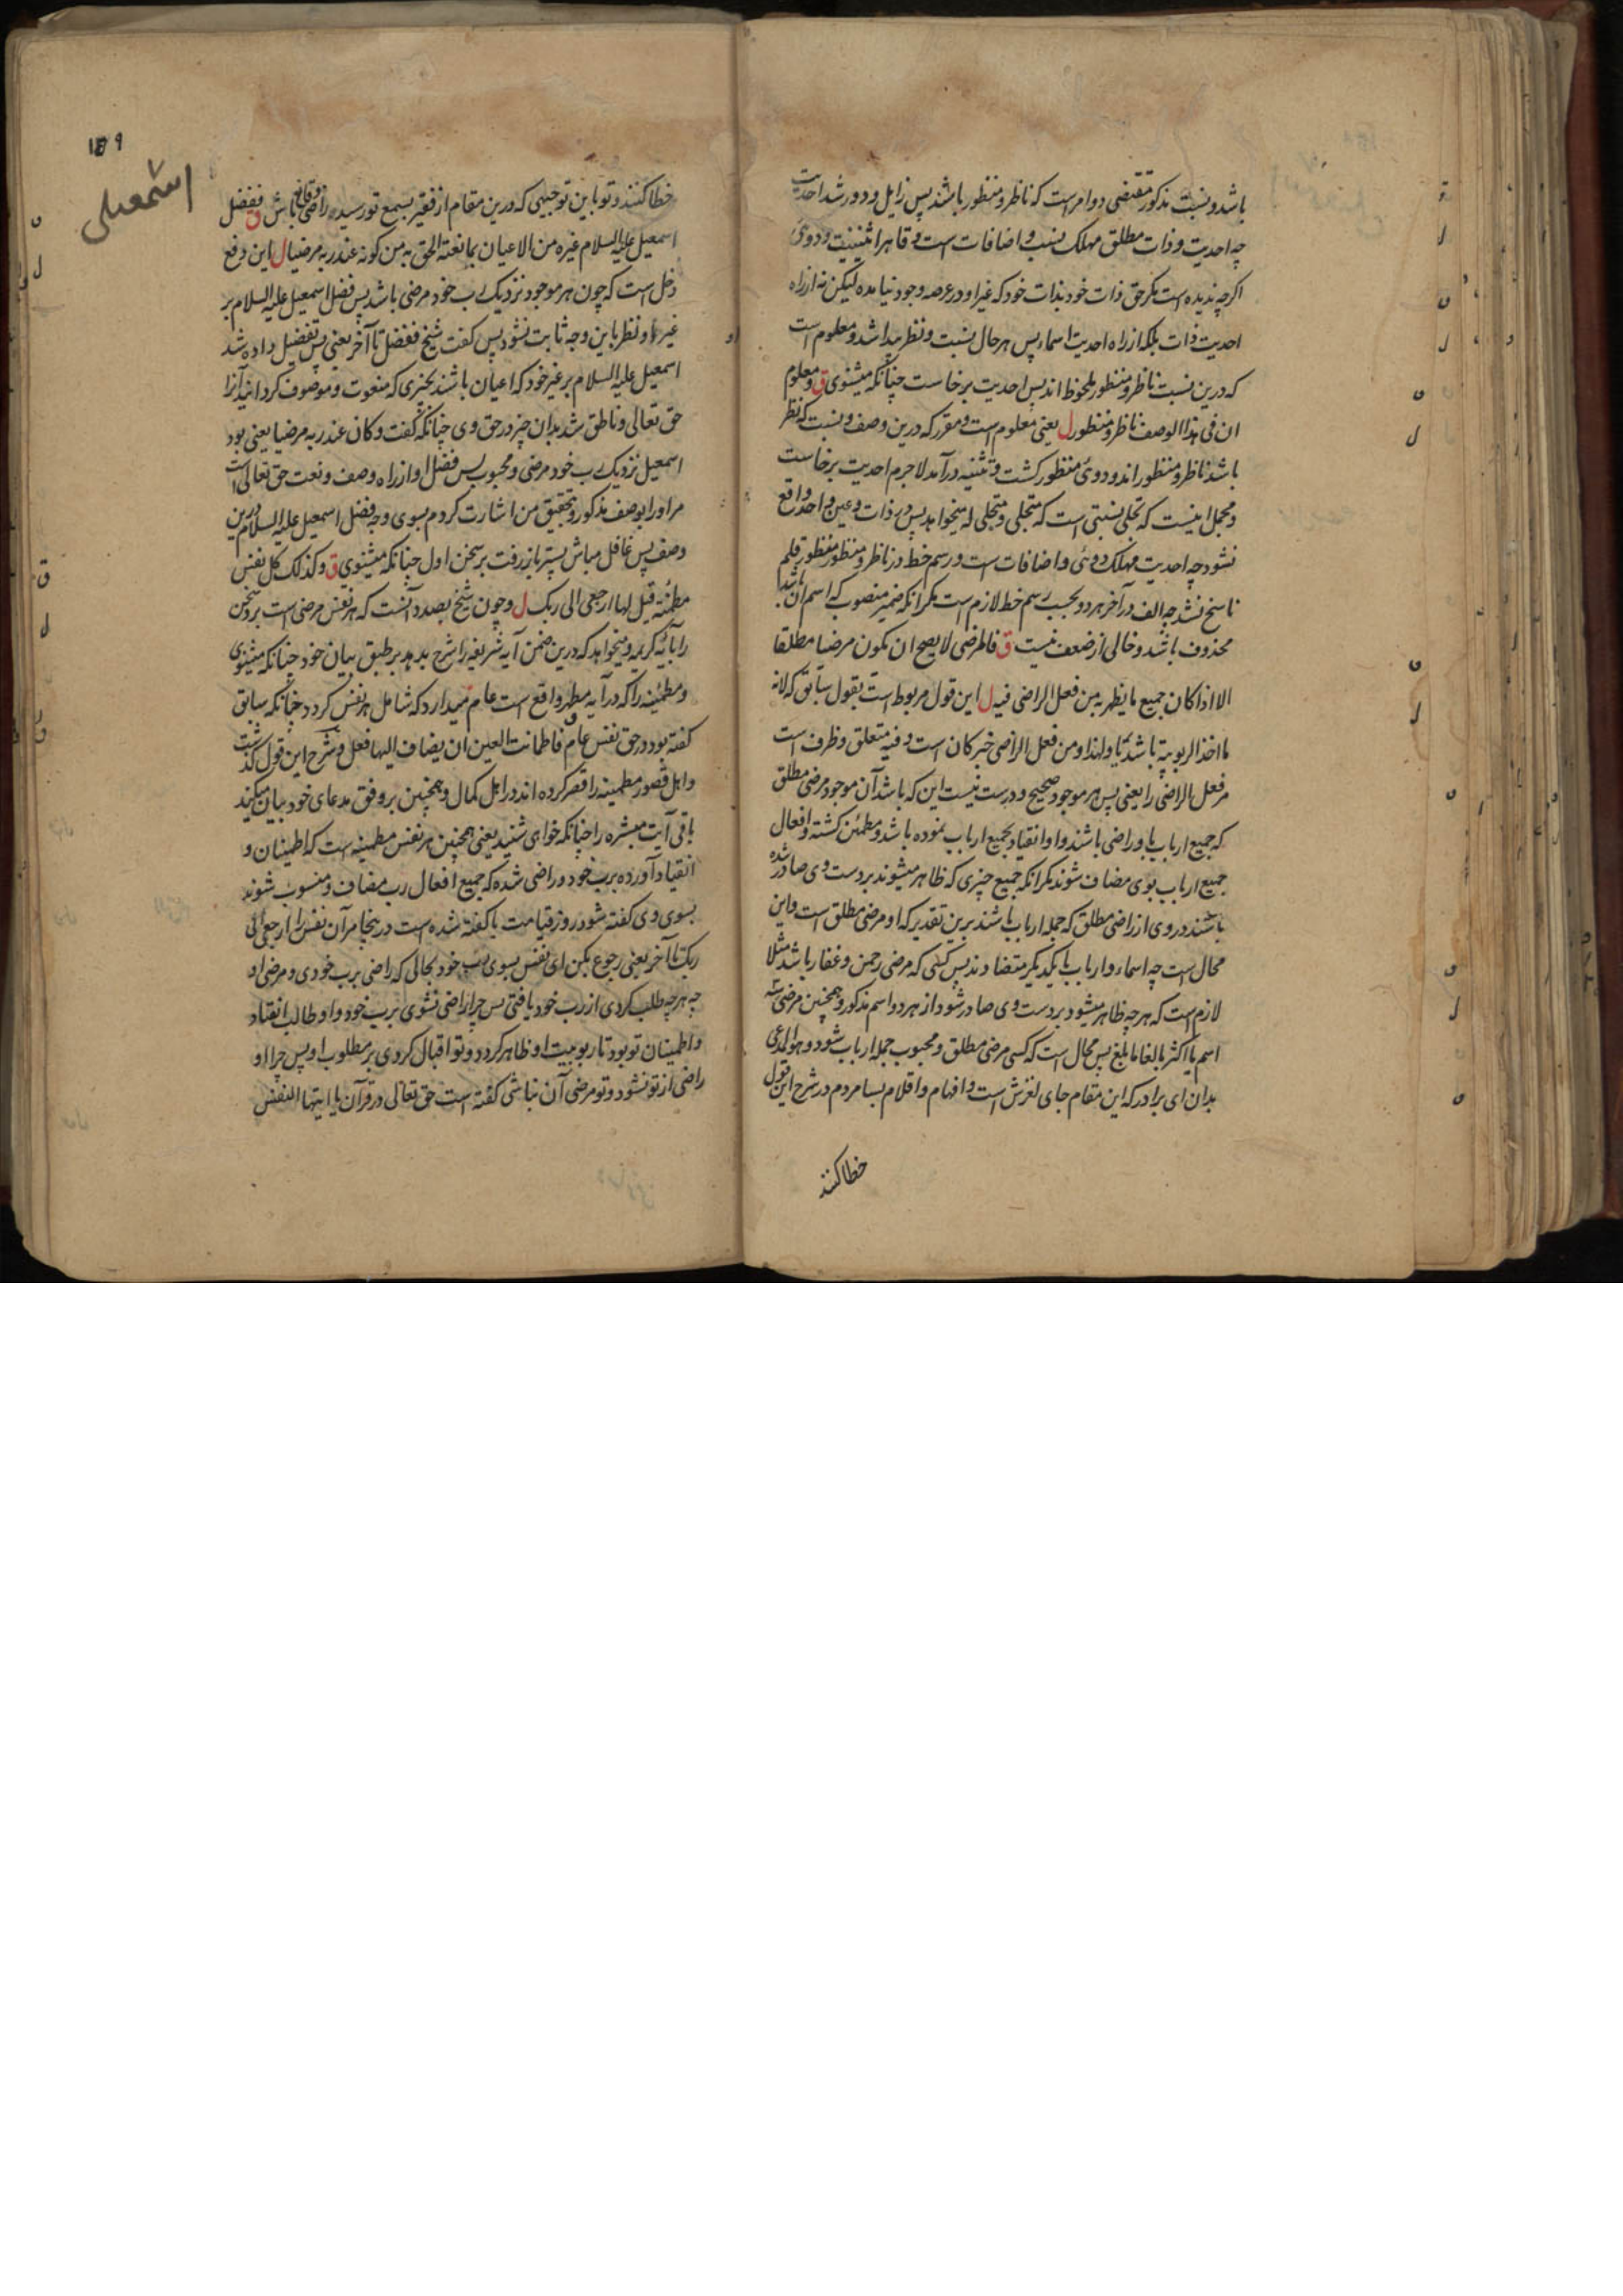 باشد و نسبت مذکور مقتضی دو امر است که ناظر و منظور باشند پس زایل و دور شد احدیت
چه احدیت و ذات مطلق مهلک نسب و اضافات است و قاهر اثنینیت و دوئی
اکرچه ندیده است مکر حق ذات خود بذات خود که غیر او در عرصه وجود نیامده لیکن نه از راه
احدیت ذات بلکه از راه احدیت اسماء پس هر حال نسبت و نظر پیدا شد و معلوم است
که درین نسبت ناظر و منظور ملحوظ اند پس احدیت برخاست چنانکه میشنوی ق و معلوم
ان فی هذا الوصف ناظر و منظور ل یعنی معلوم است و مقرر که درین وصف و نسبت که نظر
باشد ناظر و منظور اند و دوئی منظور کشت و تثنیه درآمد لاجرم احدیت برخاست
و مجمل اینست که تجلی نسبتی است که متجلی و متجلی له میخواهد پس در ذات و عین واحد واقع
نشود چه احدیت مهلک دوئی و اضافات است و رسم خط در ناظر و منظور منظور قلم
ناسخ نشد چه الف در آخر هر دو بحسب رسم خط لازم است مکر آنکه ضمیر منصوب که اسم ان باشد
محذوف باشد و خالی از ضعف نیست ق فالمرضی لا یصح ان یکون مرضیا مطلقا
الا اذا کان جمیع ما یظهر به من فعل الراضی فیه ل این قول مربوط است بقول سابق که لانه
ما اخذ الربوبیة باشد تا و لهذا و من فعل الراضی خبر کان است و فیه متعلق و ظرف است
مر فعل الراضی را یعنی پس هر موجود صحیح و درست نیست این که باشد آن موجود مرضی مطلق
که جمیع ارباب باو راضی باشند و او انقیاد بجمیع ارباب نموده باشد و مطمئن کشته و افعال
جمیع ارباب بوی مضاف شوند مکر آنکه جمیع چیزی که ظاهر میشوند بر دست وی صادر شده
باشند در وی از راضی مطلق که جمله ارباب باشند برین تقدیر که او مرضی مطلق است و این
محال است چه اسماء و ارباب با یکدیکر متضادند پس کسی که مرضی رحمن و غفار باشد مثلا
لازم است که هر چه ظاهر میشود بر دست وی صادر شود از هر دو اسم مذکور و همچنین مرضی سه
اسم یا اکثر بالغا ما بلغ پس محال است که کسی مرضی مطلق و محبوب جمله ارباب شود و هو المدعی
بدان ای برادر که این مقام جای لغزش است و افهام و اقلام بسا مردم در شرح این قول
خطا کنند
۱۵۹
اسمعیلی
خطا کنند و تو باین توجیهی که درین مقام از فقیر بسمع تو رسیده راضی و قانع باش ق ففضل
اسمعیل علیه السلام غیره من الاعیان بما نعته الحق به من کونه عند ربه مرضیا ل این دفع
دخل است که چون هر موجود نزدیک رب خود مرضی باشد پس فضل اسمعیل علیه السلام بر
غیر او نظر باین وجه ثابت نشود پس کفت شیخ ففضل تا آخر یعنی پس تفضیل داده شد
اسمعیل علیه السلام بر غیر خود که اعیان باشند بچیزی که منعوت و موصوف کردانید آنرا
حق تعالی و ناطق شد بدان چیز در حق وی چنانکه کفت و کان عند ربه مرضیا یعنی بود
اسمعیل نزدیک رب خود مرضی و محبوب پس فضل او از راه وصف و نعت حق تعالی است
مر او را بوصف مذکور و بتحقیق من اشارت کردم بسوی وجه فضل اسمعیل علیه السلام درین
وصف پس غافل مباش پستر باز رفت بر سخن اول چنانکه میشنوی ق و کذلک کل نفس
مطمئنة قیل لها ارجعی الی ربک ل و چون شیخ بصدد آنست که هر نفس مرضی است برد سخن
را بآیه کریمه و میخواهد که درین ضمن آیه شریفه را شرح بدهد بر طبق بیان خود چنانکه میشنوی
و مطمئنه را که در آیه مطهر واقع است عام میدارد که شامل هر نفس کردد چنانکه سابق
کفته بود در حق نفس عام فاطمانت العین ان یضاف الیها فعل و شرح این قول کذشت
و اهل قصور مطمینه را قصر کرده اند در اهل کمال و همچنین بر وفق مدعای خود بیان میکند
باقی آیت مبشره را چنانکه خوای شنید یعنی همچنین هر نفس مطمینه است که اطمینان و
انقیاد آورده برب خود و راضی شده که جمیع افعال رب مضاف و منسوب شوند
بسوی وی کفته شود روز قیامت یا کفته شده است در ینجا مر آن نفس را ارجعی الی
ربک تا آخر یعنی رجوع بکن ای نفس بسوی رب خود بحالی که راضی برب خودی و مرضی او
چه هر چه طلب کردی از رب خود یافتی پس چرا راضی نشوی برب خود و او طالب انقیاد
و اطمینان تو بود تا ربوبیت او ظاهر کردد و تو اقبال کردی بر مطلوب او پس چرا او
راضی از تو نشود و تو مرضی آن نباشی کفته است حق تعالی در قرآن یا ایتها النفس